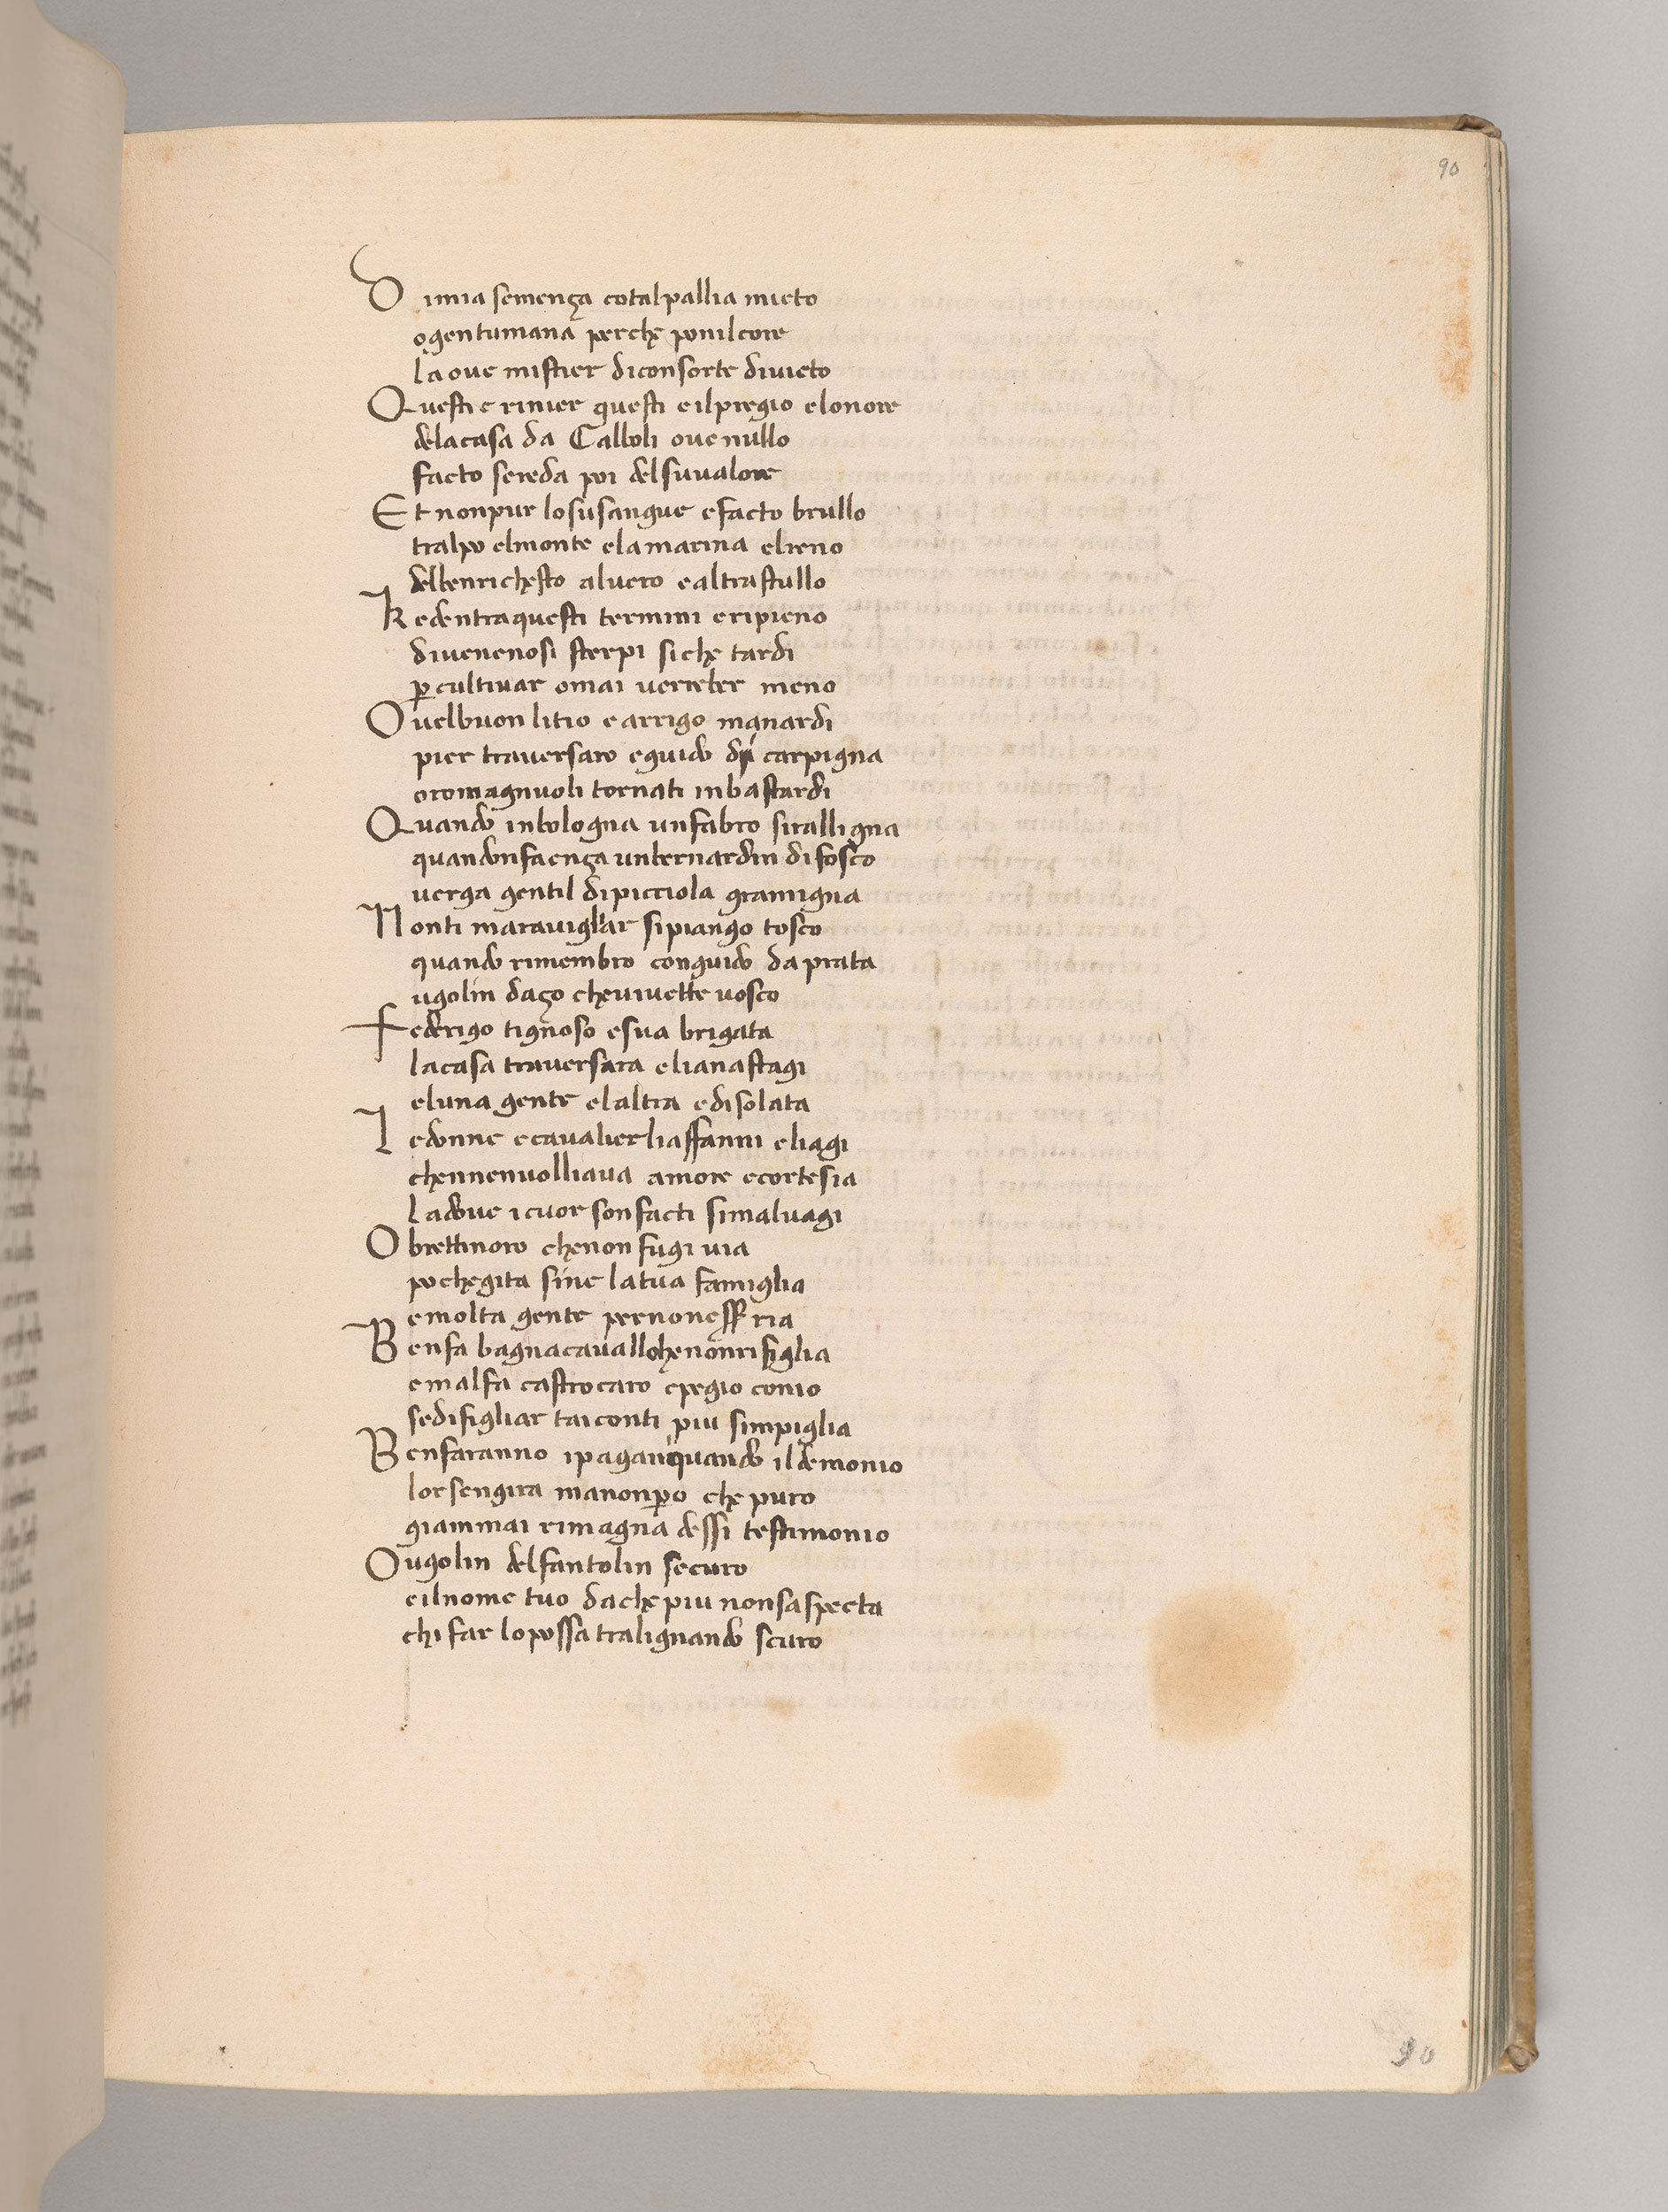 90
D imia semença cotal pallia mieto
ogentumana perche ponilcore
la ove mistier diconsorte divieto
Questi e rinier questi eilpregio elonore
delacasa da Calboli ove nullo
facto sereda poi delsuvalore
Et nonpur losusangue efacto brullo
tralpo elmonte elamarina elreno
delbenrichesto alvero ealtrastullo
Kedentraquesti termini eripieno
divenenosi sterpi siche tardi
per cultivar omai verrebber meno
Ovelbuon litio earrigo manardi
pier traversaro eguido di carpigna
oromagnuoli tornati inbastardi
Quando inbologna unfabro siralligna
quandonfaença unbernardin difosco
verga gentil dipicciola gramigna
Nonti maravigliar sipiango tosco
quando rimembro conguido daprata
ugolin daço chevivette vosco
Federigo tignoso esua brigata
lacasa traversara elianastagi
eluna gente elaltra edisolata
Ledonne ecavalierliaffanni eliagi
chennenvolliava amore ecortesia
ladove icuor sonfacti simalvagi
Obrettinoro chenon fugi via
pochegita sine latua famiglia
emolta gente pernonesser ria
Benfa bagnacavallo chenonrifiglia
emalfa castrocaro epegio conio
sedifigliar taiconti piu simpiglia
Benfaranno ipagani quando ildemonio
lor sengira manonpero che puro
giammai rimagna dessi testimonio
Ougolin delfantolin securo
eilnome tuo dache piu nonsaspecta
chi far lopossa tralignando scuro
90